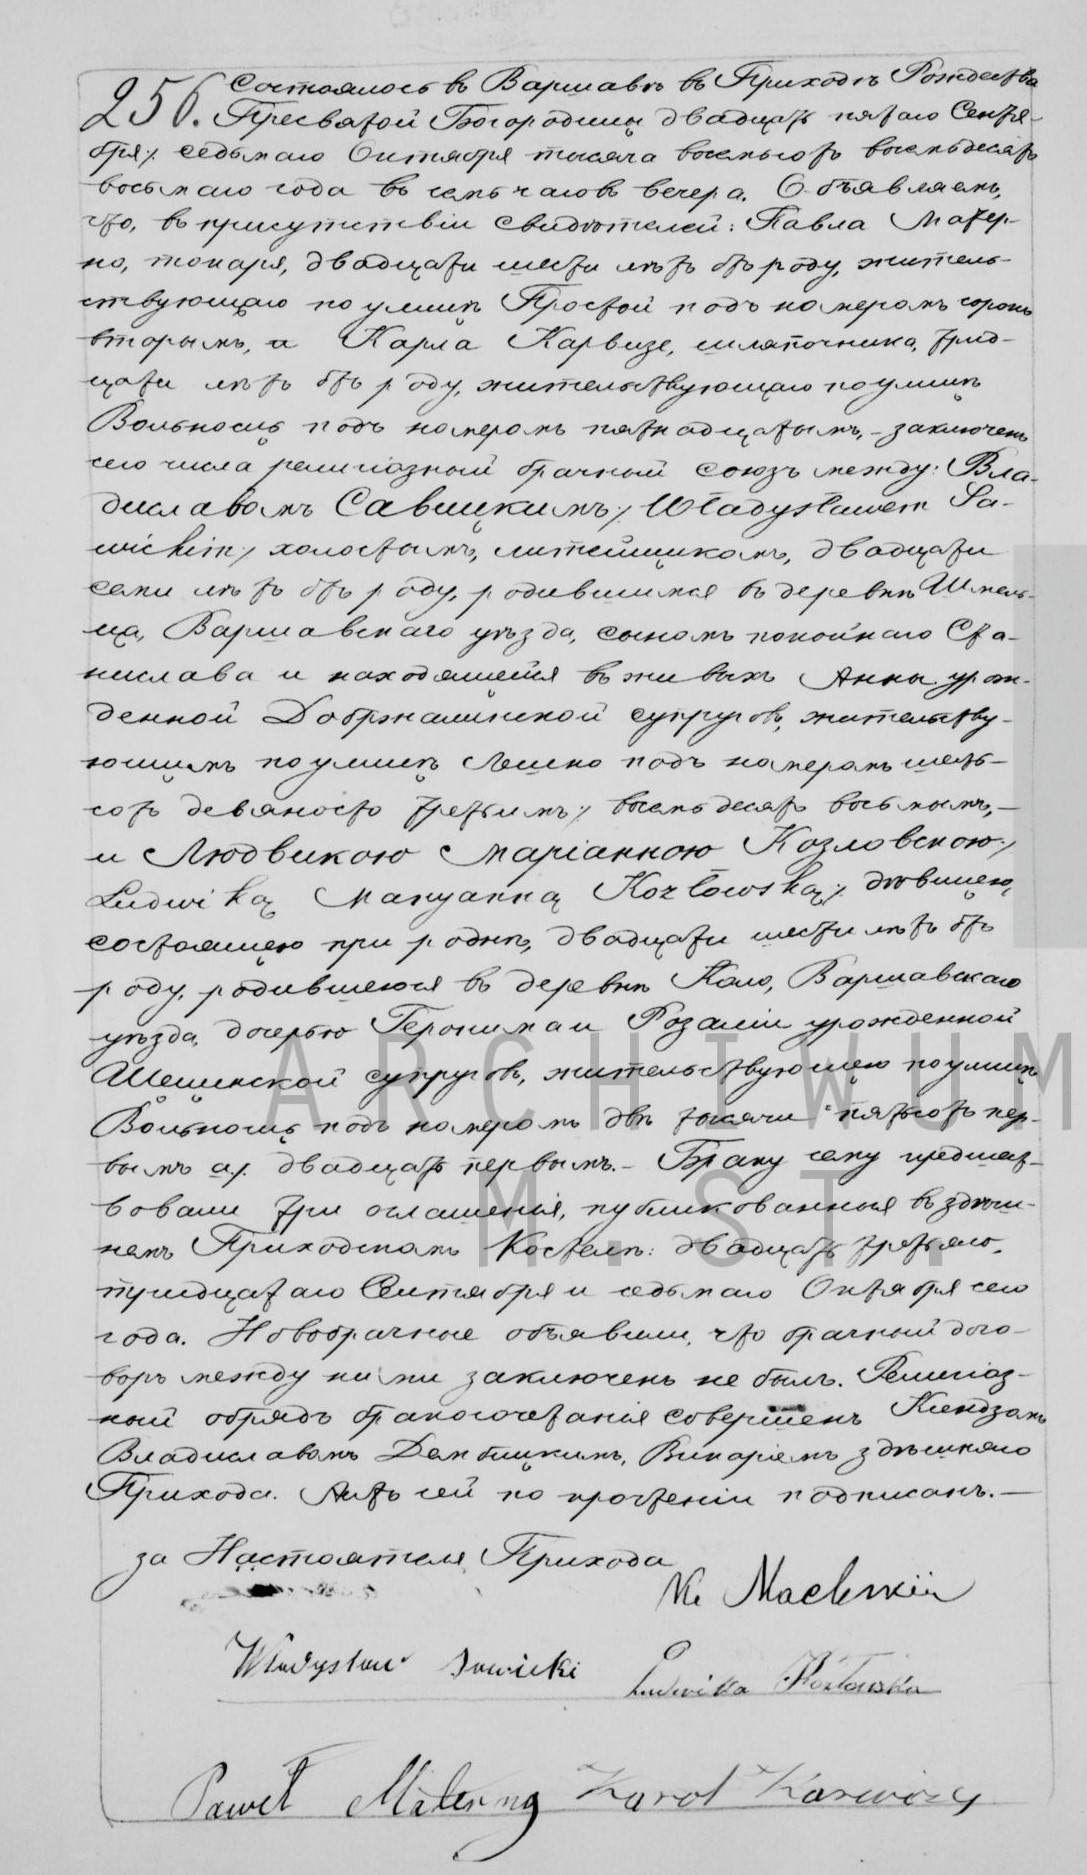 256. Состоялось въ Варшавѣ въ Приходѣ Рождества
Пресвятой Богородицы двадцать пятаго Сентя-
бря /: седьмаго Октября тысяча восемьсотъ восемьдесятъ
восьмаго года въ семь часовъ вечера. Объявляемъ,
что, въ присутствіи свидѣтелей: Павла Матер-
но, токаря, двадцати шести лѣтъ отъ роду, житель-
ствующаго по улицѣ Простой подъ номеромъ сорокъ
вторымъ, и Карла Карвизе, шляпочника, трид-
цати лѣтъ отъ роду, жительствующаго по улицѣ
Вольносць подъ номеромъ пятнадцатымъ, - заключенъ
сего числа религіозный брачный союзъ между: Вла-
диславомъ Савицкимъ /: Władysławem Sa-
wickim :/ холостымъ, литейщикомъ, двадцати
семи лѣтъ отъ роду, родившимся въ деревнѣ Шмель-
ца, Варшавскаго уѣзда, сыномъ покойнаго Ста-
нислава и находящейся въ живыхъ Анны урож-
денной Добржалинской супруговъ, жительству-
ющимъ по улицѣ Лешно подъ номеромъ шесть-
сотъ девяносто третьимъ /: восемьдесятъ восьмымъ, —
и Людвикою Маріанною Козловскою /:
Ludwiką Maryanną Kozłowską :/ дѣвицею,
состоящею при роднѣ, двадцати шести лѣтъ отъ
роду, родившеюся въ деревнѣ Коло, Варшавскаго
уѣзда, дочерью Геронима и Розаліи урожденной
Щецинской супруговъ, жительствующею по улицѣ
Вольносць подъ номеромъ двѣ тысячи пятьсотъ пер-
вымъ а /: двадцать первымъ. - Браку сему предшест-
вовали три оглашенія, публикованныя въ здѣш-
немъ Приходскомъ Костелѣ: двадцать третьяго,
тридцатаго Сентября и седьмаго Октября сего
года. Новобрачные объявили, что брачный дого-
воръ между ними заключенъ не былъ. Религіоз-
ный обрядъ бракосочетанія совершенъ Ксендзомъ
Владиславомъ Дембицкимъ, Викаріемъ здѣшняго
Прихода. Актъ сей по прочтеніи подписанъ. —
за Настоятеля Прихода
Władysław Sawicki Ludwika Kozłowska
Paweł Materng Karol
ARCHIWUM
M. ST.